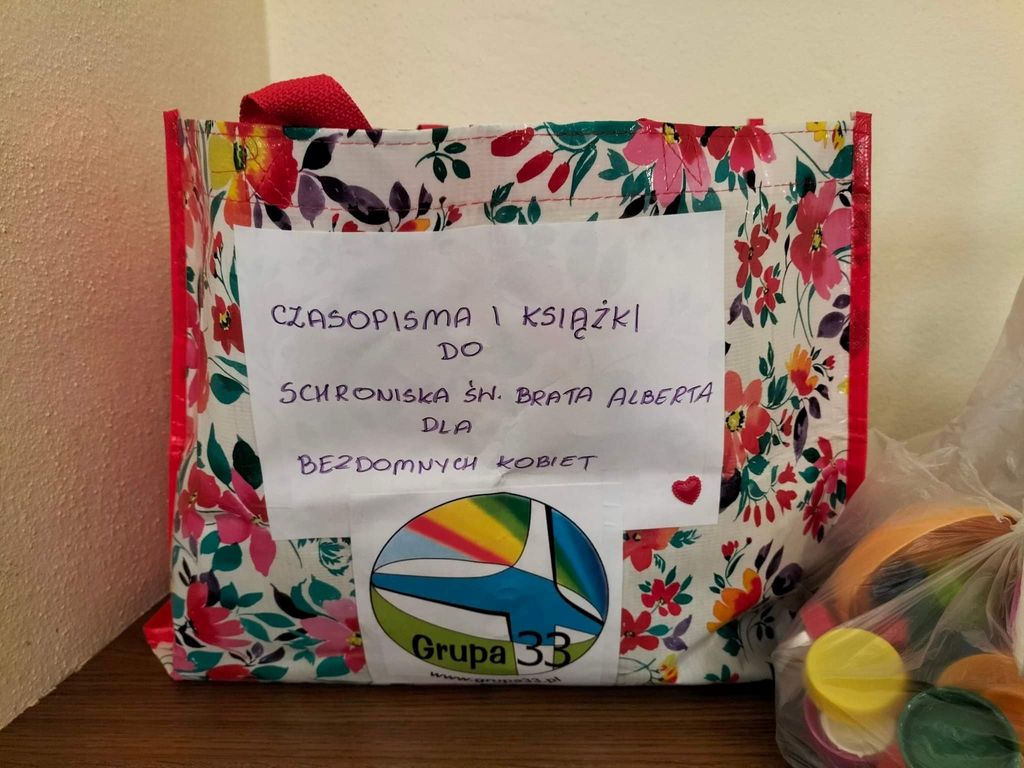 CZASOPISMA I KSIĄŻKI
DO
SCHRONISKA ŚW. BRATA ALBERTA
DLA
BEZDOMNYCH KOBIET
Grupa 33
www.grupa33.pl